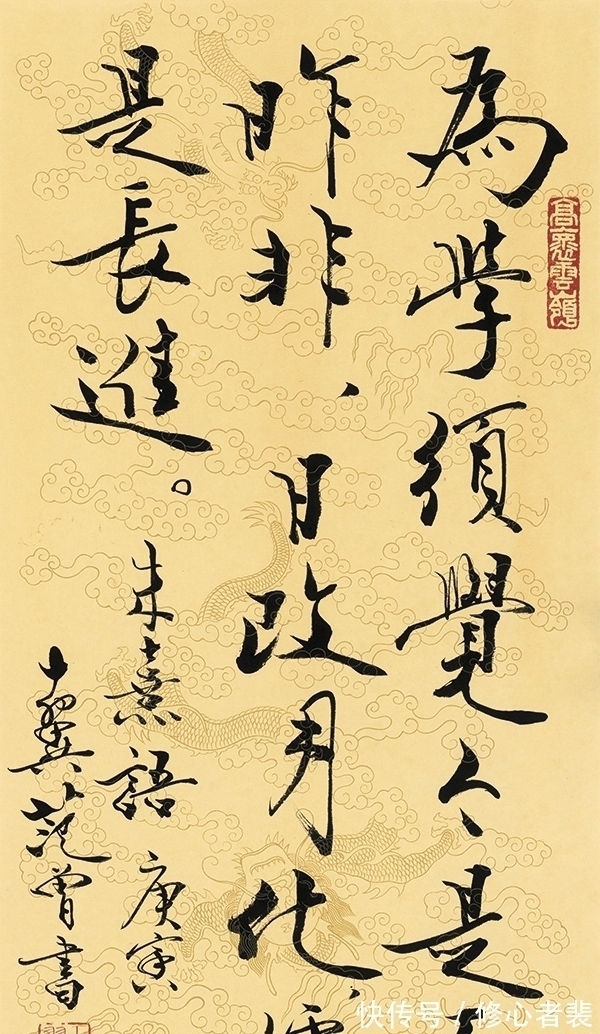 為學須覺今是
昨非、日改月化、
是長進。
朱熹語 庚寅
十翼范曾書
快传号 / 修心者裴